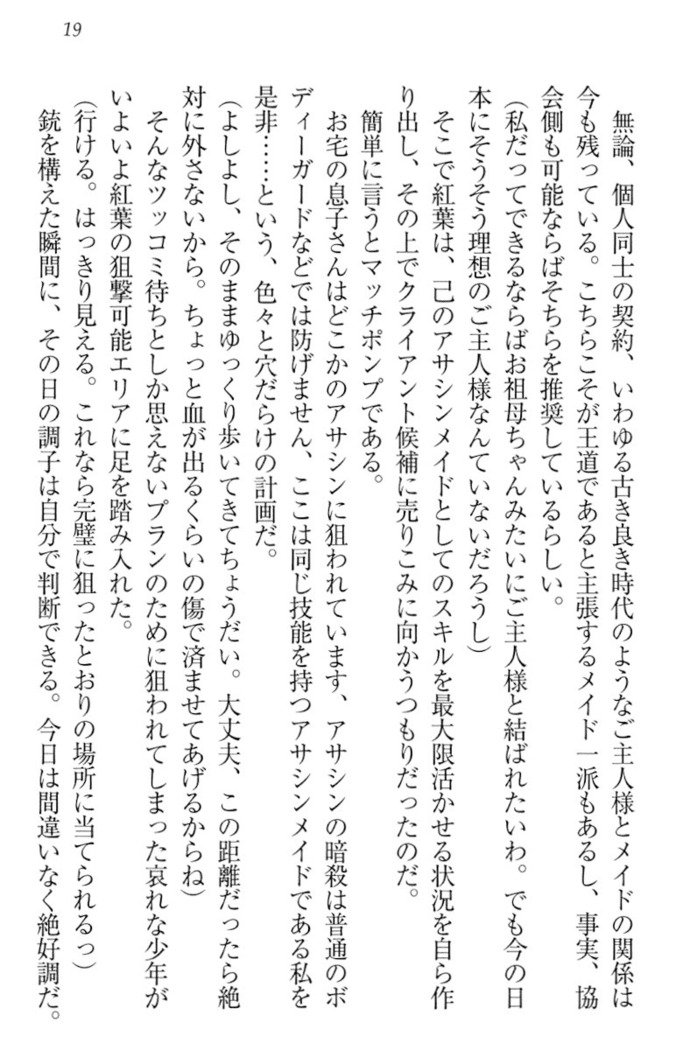 19
無論、個人同士の契約、いわゆる古き良き時代のようなご主人様とメイドの関係は
今も残っている。こちらこそが王道であると主張するメイド一派もあるし、事実、協
会側も可能ならばそちらを推奨しているらしい。
(私だってできるならばお祖母ちゃんみたいにご主人様と結ばれたいわ。でも今の日
本にそうそう理想のご主人様なんていないだろうし)
そこで紅葉は、己のアサシンメイドとしてのスキルを最大限活かせる状況を自ら作
り出し、その上でクライアント候補に売りこみに向かうつもりだったのだ。
簡単に言うとマッチポンプである。
お宅の息子さんはどこかのアサシンに狙われています、アサシンの暗殺は普通のボ
ディーガードなどでは防げません、ここは同じ技能を持つアサシンメイドである私を
是非……という、色々と穴だらけの計画だ。
(よしよし、そのままゆっくり歩いてきてちょうだい。大丈夫、この距離だったら絶
対に外さないから。ちょっと血が出るくらいの傷で済ませてあげるからね)
そんなツッコミ待ちとしか思えないプランのために狙われてしまった哀れな少年が
いよいよ紅葉の狙撃可能エリアに足を踏み入れた。
(行ける。はっきり見える。これなら完璧に狙ったとおりの場所に当てられるっ)
銃を構えた瞬間に、その日の調子は自分で判断できる。今日は間違いなく絶好調だ。